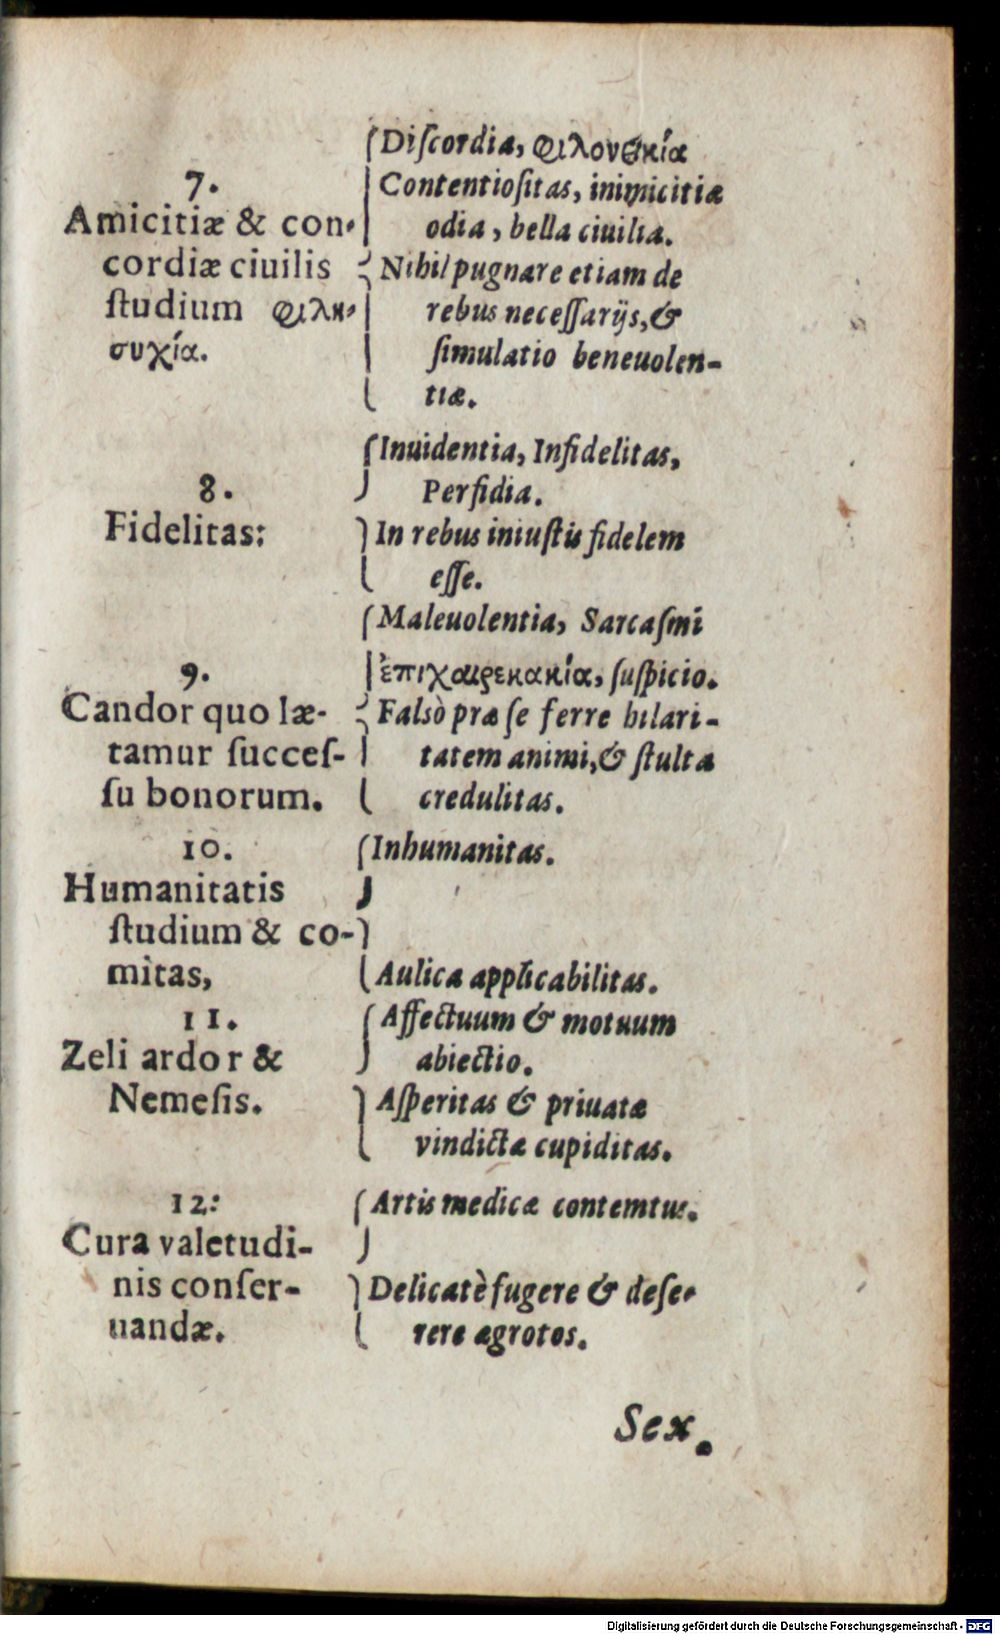 7.
Amicitiæ & con-
cordiæ ciuilis
ſtudium φιλη-
συχία.
Diſcordia, φιλονεικία
Contentioſitas, inimicitiæ
odia, bella ciuilia.
Nihil pugnare etiam de
rebus neceſſarijs, &
ſimulatio beneuolen-
tiæ.
8.
Fidelitas:
Inuidentia, Infidelitas,
Perfidia.
In rebus iniuſtis fidelem
eſſe.
9.
Candor quo læ-
tamur succeſ-
ſu bonorum.
Maleuolentia, Sarcaſmi
ἐπιχαιρεκακία, ſuſpicio.
Falsò præ ſe ferre hilari-
tatem animi, & ſtulta
credulitas.
10.
Humanitatis
ſtudium & co-
mitas,
Inhumanitas.
Aulica applicabilitas.
11.
Zeli ardor &
Nemeſis.
Affectuum & motuum
abiectio.
Aſperitas & priuatæ
vindictæ cupiditas.
12:
Cura valetudi-
nis conſer-
uandæ.
Artis medicæ contemtus.
Delicatè fugere & deſe-
rere ægrotos.
Sex.
Digitalisierung gefördert durch die Deutsche Forschungsgemeinschaft - DFG